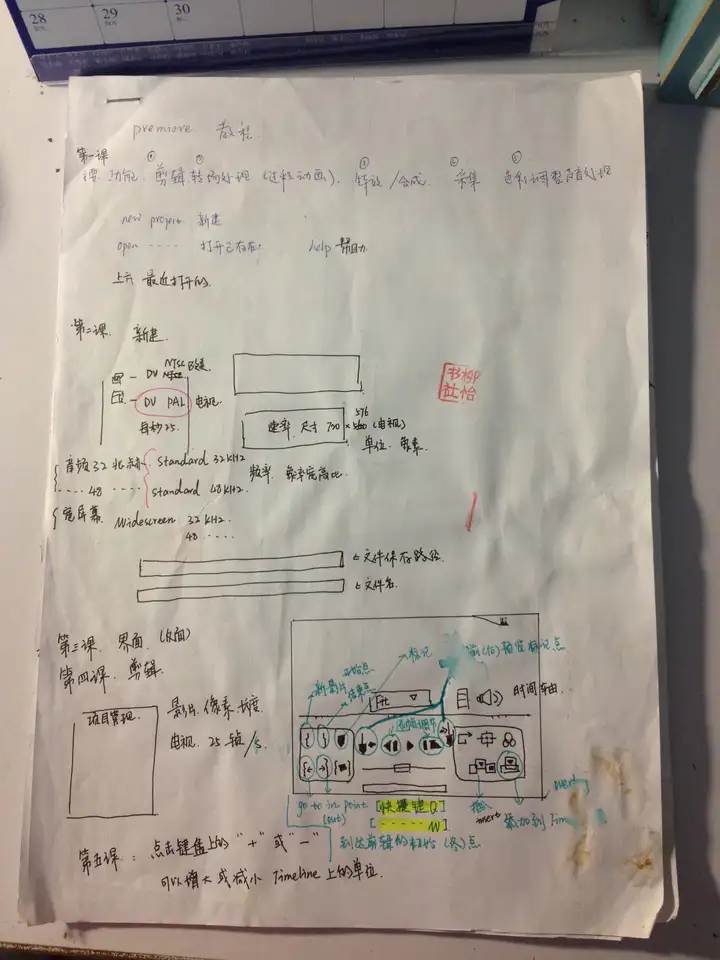 28 29 30
premiere 教程
第一课
④ ③ ① ② ⑤
功能 剪辑 转场处理 (过程动画). 释放/合成. 采集 色彩调整 声音处理
new project 新建
open ---- 打开已存在. help 帮助.
上方 最近打开的.
第二课. 新建.
DV NTSC
DV PAL 电视.
每秒25.
速率. 尺寸 720 × 576 (电视)
单位. 像素.
音频32 standard 32KHz
---- 48 ---- standard 48KHz
频率. 像素宽高比.
宽屏幕. Widescreen 32KHz.
48 ----
←文件保存路径.
←文件名.
柳怡书社
第三课. 界面. (反面)
第四课. 剪辑.
项目管理.
影片. 像素. 长度
电视. 25 帧/s.
新影片
开始点
结束点
标记
预览标记点
时间车由.
逐帧调节
go to in point [快捷键Q]
(out) [-----W]
到达剪辑的起始(终)点
插
insert
overlay
添加到Tim
第五课: 点击键盘上的 "+" 或 "-"
可以增大或减小 Timeline 上的单位.